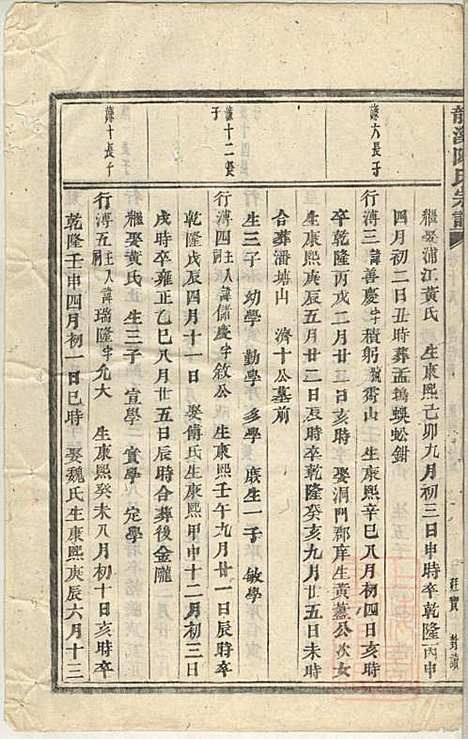 龍溪陳氏宗譜
繼娶浦江黃氏 生康熙己卯九月初三日申時卒乾隆丙申
四月初二日丑時葬孟塢蜈蚣鉗
濟六長子
行溥三諱善慶字積躬號霽山 生康熙辛巳八月初四日亥時
卒乾隆丙戌二月廿二日亥時 娶洞門鄭庠生黃蓋公次女
生康熙庚辰五月廿二日辰時卒乾隆癸亥九月廿五日未時
合葬潘塘山 濟十公墓前
生三子 幼學 勤學 多學 庶生一子 敏學
濟十二長子
行溥四主人祠諱儲慶字敘公 生康熙壬午九月廿一日辰時卒
乾隆戊辰四月十一日 娶傅氏生康熙甲申十二月初三日
戌時卒雍正乙巳八月廿五日辰時合葬後金隴
繼娶黃氏生三子 宣學 賓學 定學
濟十長子
行溥五主人祠諱瑞隆字允大 生康熙癸未八月初十日亥時卒
乾隆壬申四月初一日巳時 娶魏氏生康熙庚辰六月十三